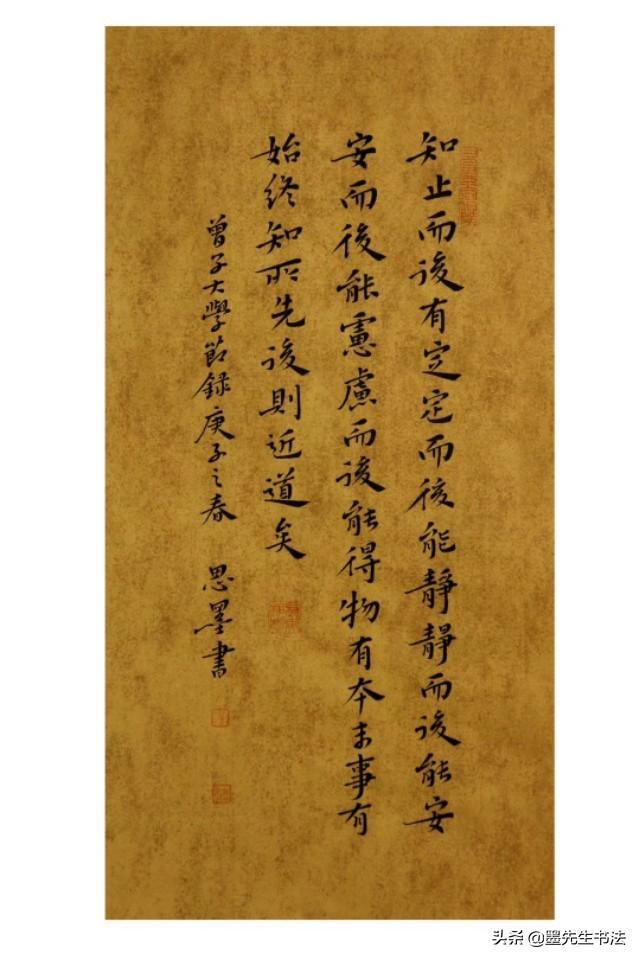 知止而后有定定而後能靜靜而后能安
安而後能慮慮而后能得物有本末事有
始終知所先後則近道矣
曾子大學節録庚子之春 思墨書
头条 @墨先生书法